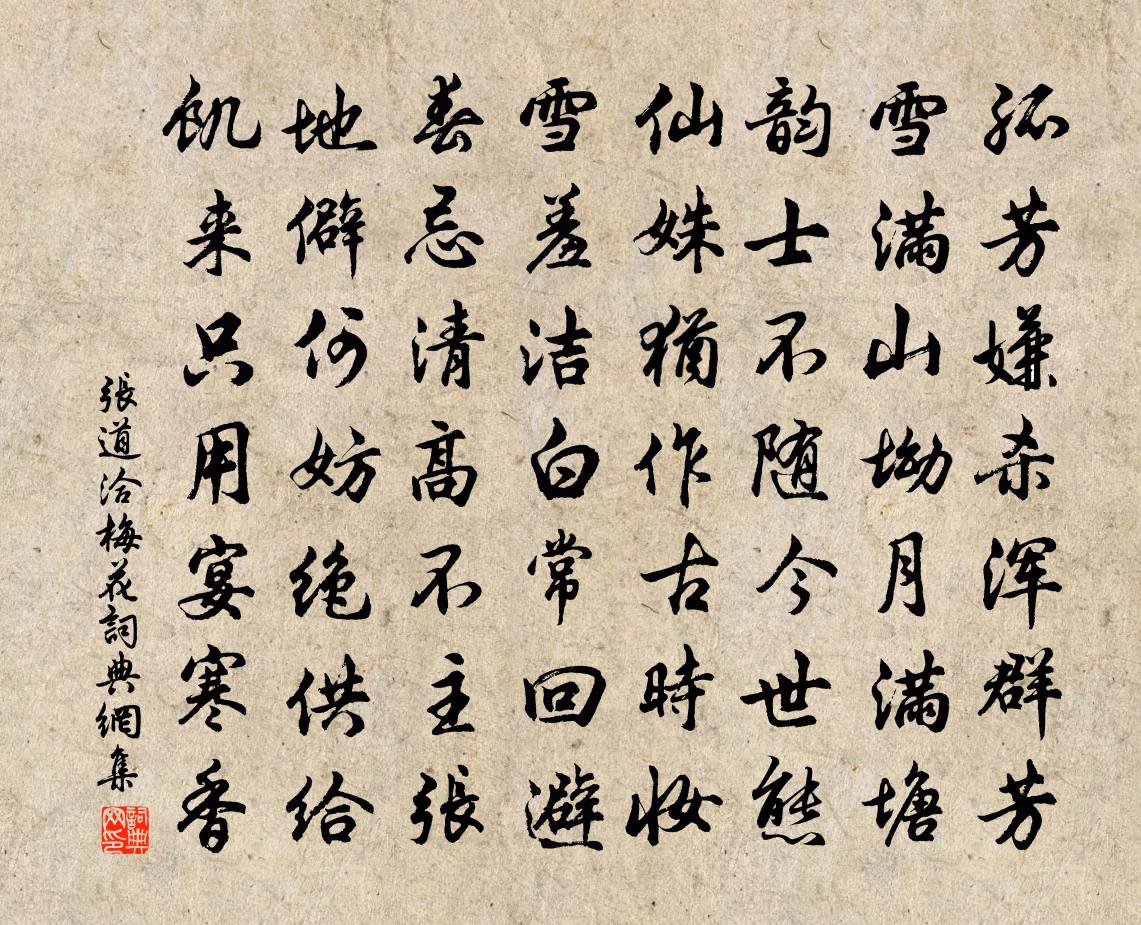 孤芳嫌杀浑群芳
雪满山坳月满塘
韵士不随今世态
仙姝犹作古時妆
雪羞洁白常回避
春忌清高不主張
地僻何妨绝供给
飢来只用宴寒香
張道洽梅花詞典網集
詞典网印